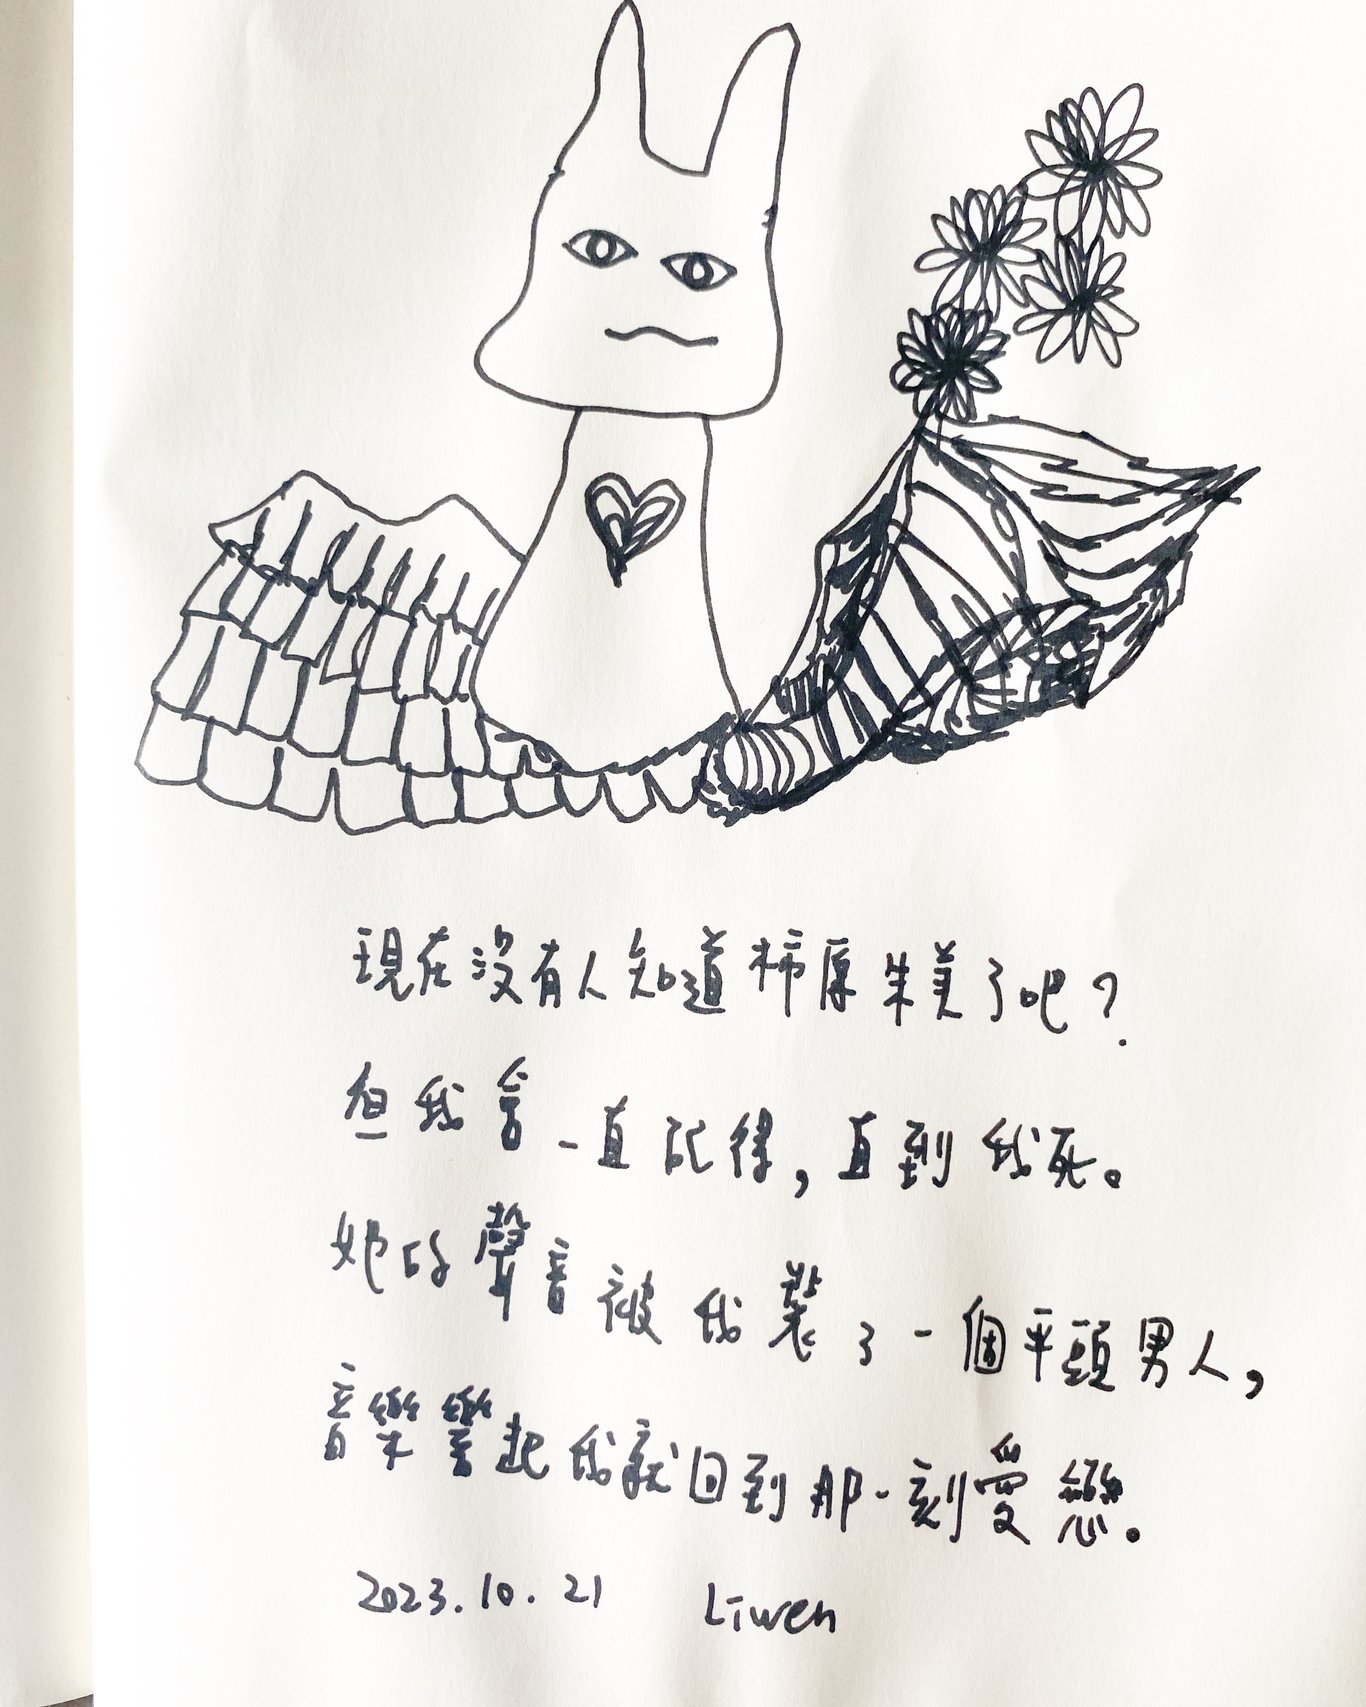 現在沒有人知道柿原朱美了吧?
但我會一直記得,直到我死。
她的聲音被我裝了一個平頭男人,
音樂響起我就回到那一刻受戀。
2023.10.21 Liwen